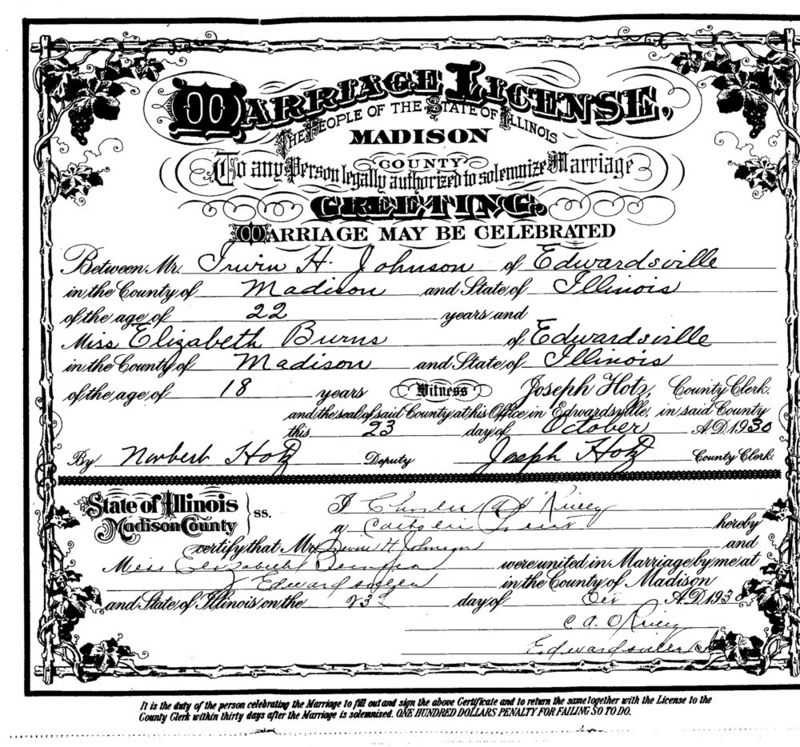 MARRIAGE LICENSE.
THE PEOPLE OF THE STATE OF ILLINOIS
MADISON
COUNTY
To any Person legally authorized to solemnize Marriage
GREETING.
MARRIAGE MAY BE CELEBRATED
Between Mr. Irwin H. Johnson of Edwardsville
in the County of Madison and State of Illinois
of the age of 22 years and
Miss Elizabeth Burns of Edwardsville
in the County of Madison and State of Illinois
of the age of 18 years Witness Joseph Hotz, County Clerk.
and the seal of said County at his Office in Edwardsville, in said County
this 23 day of October A.D. 1930
By Norbert Hotz Deputy Joseph Hotz County Clerk
State of Illinois
Madison County
ss.
I Charles
a hereby
certify that Mr. Irwin H Johnson and
Miss Elizabeth were united in Marriage by me at
Edwardsville in the County of Madison
and State of Illinois on the 23 day of Oct A.D. 1930
C. A.
Edwardsville
It is the duty of the person celebrating the Marriage to fill out and sign the above Certificate and to return the same together with the License to the
County Clerk within thirty days after the Marriage is solemnized. ONE HUNDRED DOLLARS PENALTY FOR FAILING SO TO DO.